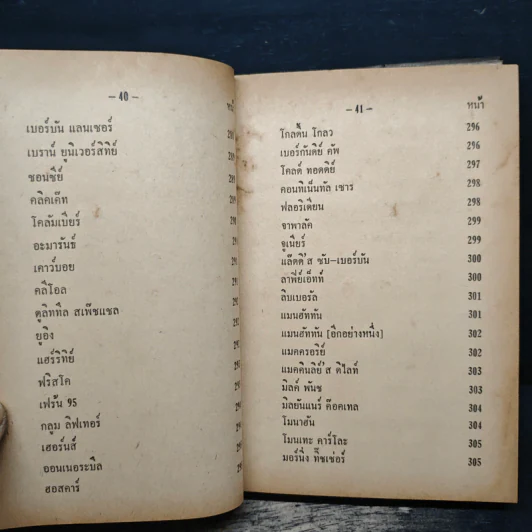 – 40 –
เบอร์บัน แลนเซอร์
เบราน์ ยูนิเวอร์สิทีย์
ซอนซีย์
คลิคเค๊ท
โคลัมเบียร์
อะมารันช์
เคาว์บอย
คลีโอล
ดูลิททึล สเพ๊ชแชล
ยูอิง
แฮร์ริทีย์
ฟริสโค
เฟร้น 95
กลูม ลิฟเทอร์
เฮอร์นส์
ออนเนอระบิล
ฮอสคาร์
– 41 –
หน้า
โกลดึ้น โกลว 296
เบอร์กันดีย์ คัพ 296
โคลด์ ทอดดีย์ 297
คอนทิเน็นทัล เซาร 298
ฟลอริเดียน 298
จาพาลัค 299
จูเนียร์ 299
แล๊ดดี'ส ซับ–เบอร์บัน 300
ลาฟีย์เอ็ทท์ 300
ลิบเบอรัล 301
แมนฮัททัน 301
แมนฮัททัน [อีกอย่างหนึ่ง] 302
แมคครอรีย์ 302
แมคคินลีย์'ส ดิไลท์ 303
มิลค์ พันช 303
มิลยันแนร์ ค๊อคเทล 304
โมนาฮัน 304
โมนเทะ คาร์โละ 305
มอร์นิ่ง ทิ๊ชเช่อร์ 305